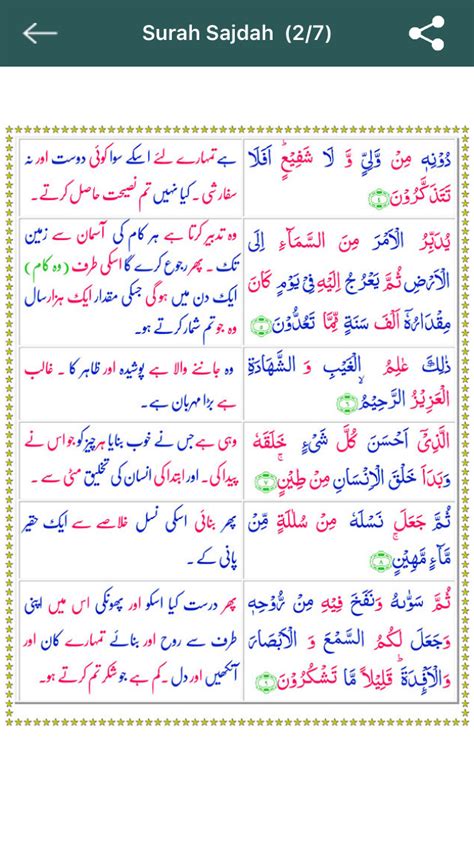 Surah Sajdah (2/7)
دُوۡنِهٖ مِنۡ وَّلِىٍّ وَّ لَا شَفِيۡعٍؕ اَفَلَا
تَتَذَكَّرُوۡنَ ۴
ہے تمہارے لئے اسکے سوا کوئی دوست اور نہ
سفارشی ۔ کیا نہیں تم نصیحت حاصل کرتے۔
يُدَبِّرُ الۡاَمۡرَ مِنَ السَّمَآءِ اِلَى
الۡاَرۡضِ ثُمَّ يَعۡرُجُ اِلَيۡهِ فِىۡ يَوۡمٍ كَانَ
مِقۡدَارُهٗۤ اَلۡفَ سَنَةٍ مِّمَّا تَعُدُّوۡنَ ۵
وہ تدبیر کرتا ہے ہر کام کی آسمان سے زمین
تک ۔ پھر رجوع کرے گا اسکی طرف (وہ کام)
ایک دن میں ہو گی جسکی مقدار ایک ہزار سال
وہ جو تم شمار کرتے ہو۔
ذٰلِكَ عٰلِمُ الۡغَيۡبِ وَ الشَّهَادَةِ
الۡعَزِيۡزُ الرَّحِيۡمُۙ ۶
وہ جاننے والا ہے پوشیدہ اور ظاہر کا ۔ غالب
ہے بڑا مہربان ہے۔
الَّذِىۡۤ اَحۡسَنَ كُلَّ شَىۡءٍ خَلَقَهٗ
وَبَدَاَ خَلۡقَ الۡاِنۡسَانِ مِنۡ طِيۡنٍۚ ۷
وہی ہے جس نے خوب بنایا ہر چیز کو جو اس نے
پیدا کی۔ اور ابتدا کی انسان کی تخلیق مٹی سے ۔
ثُمَّ جَعَلَ نَسۡلَهٗ مِنۡ سُلٰلَةٍ مِّنۡ
مَّآءٍ مَّهِيۡنٍۚ ۸
پھر بنائی اسکی نسل خلاصے سے ایک حقیر
پانی کے ۔
ثُمَّ سَوّٰٮهُ وَنَفَخَ فِيۡهِ مِنۡ رُّوۡحِهٖ
وَجَعَلَ لَكُمُ السَّمۡعَ وَ الۡاَبۡصَارَ
وَالۡاَفۡـِٕدَةَ ؕ قَلِيۡلًا مَّا تَشۡكُرُوۡنَ ۹
پھر درست کیا اسکو اور پھونکی اس میں اپنی
طرف سے روح اور بنائے تمہارے کان اور
آنکھیں اور دل ۔ کم ہے جو شکر تم کرتے ہو۔